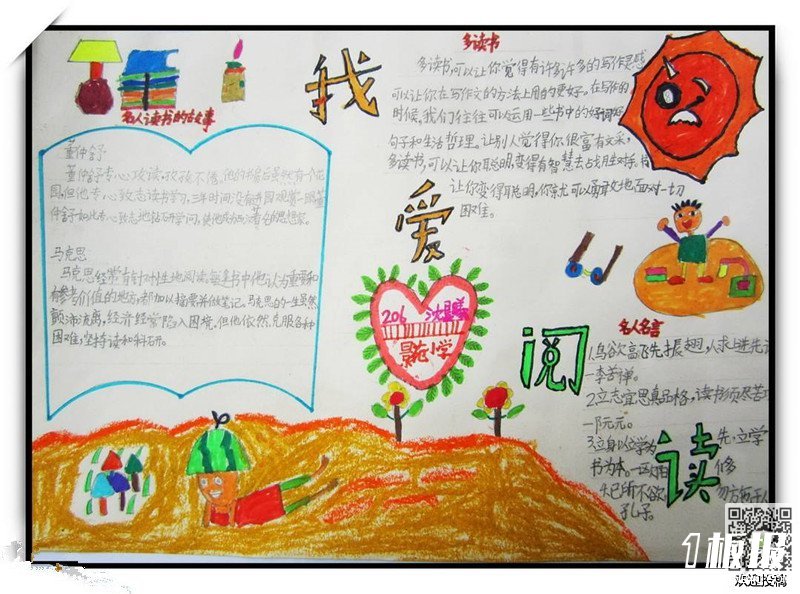 多读书
多读书可以让你觉得有许多许多的写作灵感
可以让你在写作文的方法上用的更好。在写作的
时候,我们往往可以运用一些书中的好词好
句子和生活哲理。让别人觉得你很富有文采,
多读书,可以让你聪明,变得有智慧去战胜对手
让你变得聪明,你就可以勇敢地面对一切
困难。
我
爱
阅
读
名人读书的故事
董仲舒
董仲舒专心攻读,孜孜不倦。他的书房后虽然有一个花
园,但他专心致志读书学习,三年时间没有进园观赏一眼董
仲舒如此专心致志地钻研学问,使他成为西汉著名的思想家。
马克思
马克思经常有针对性地阅读,每逢书中他认为重要和
有参考价值的地方,都加以描要并做笔记。马克思的一生虽然
颠沛流离,经济经常陷入困境,但他依然克服各种
困难,坚持读和科研。
206
小学
名人名言
1.鸟欲高飞先振翅,人求上进先读
—李苦禅。
2.立志宜思真品格,读书须尽苦功
—阮元。
3.立身以立学为先,立学
书为本。—欧阳修
4.己所不欲,勿施于人
孔子。
1板报
欢迎投稿